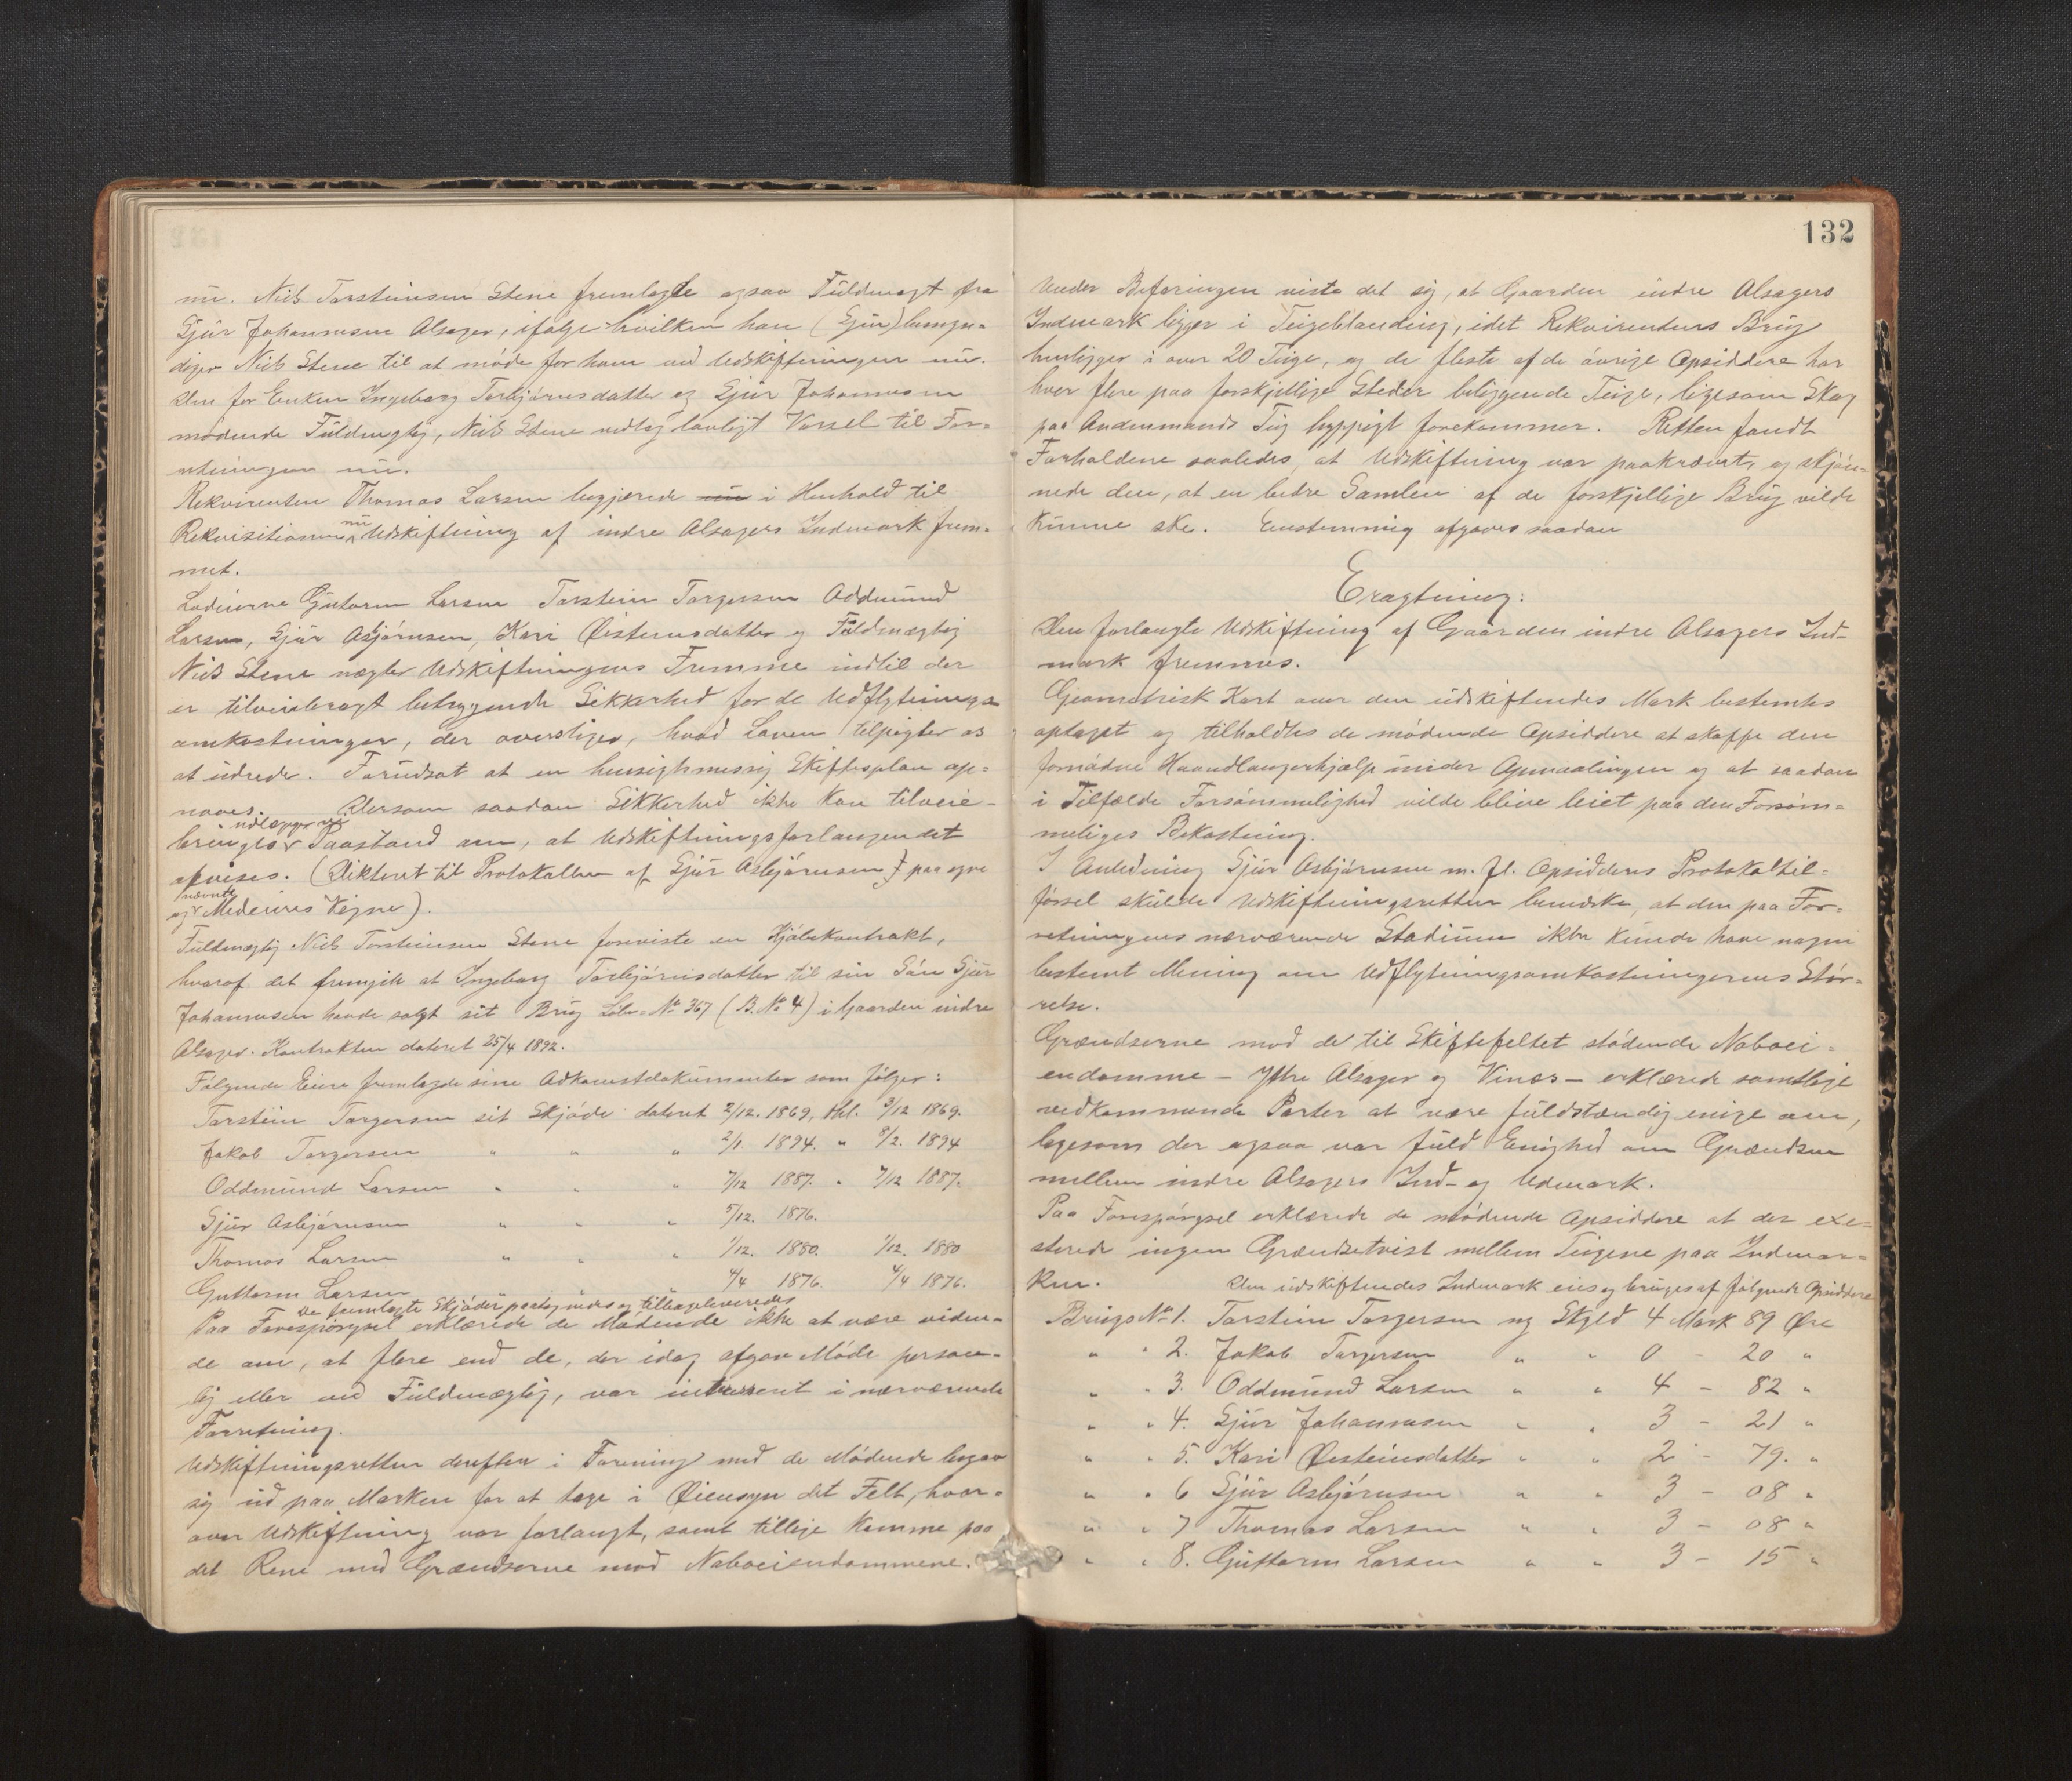 nu. Nils Torsteinsen Stene fremlagte ogsaa Fuldmagt fra
Sjur Johannesen Alsager, ifølge hvilken han (Sjur) bemyn-
diger Nils Stene til at møde for ham ved Udskiftningen nu.
Den for Enken Ingeborg Torbjørnsdatter og Sjur Johannesen
mødende Fuldmægtig, Nils Stene vedtog lovligt Varsel til For-
retningen nu.
Rekvirenten Thomas Larsen begjærede nu i Henhold til
Rekvisitionen nu Udskiftning af indre Alsagers Indmark frem-
met.
Lodeierne Guttorm Larsen Torstein Torgersen Oddmund
Larsen, Sjur Asbjørnsen, Kari Øisteinsdatter og Fuldmægtig
Nils Stene nægter Udskiftningens Fremme indtil der
er tilveiebragt betryggende Sikkerhed for de Udflytnings-
omkostninger, der overstiger, hvad Loven tilpligter os
at udrede. Forudsat at en hensigtsmessig Skifteplan op-
naaes. Dersom saadan Sikkerhed ikke kan tilveie-
bringes nedlægger vi Paastand om, at Udskiftningsforlangendet
afvises. (Dikteret til Protokollen af Sjur Asbjørnsen) paa egne
og nævnte Medeieres Vegne).
Fuldmægtig Nils Torsteinsen Stene foreviste en Kjøbekontrakt,
hvoraf det fremgik at Ingeborg Torbjørnsdatter til sin Søn Sjur
Johannesen havde solgt sit Brug Løbe-No 367 (B. No 4) i Gaarden indre
Alsager. Kontrakten dateret 25/4 1892.
Følgende Eiere fremlagde sine Adkomstdokumenter som følger:
Torstein Torgersen sit Skjøde dateret 2/12. 1869, thl. 3/12 1869.
Jakob Torgersen " " " 2/1 1894. " 8/2. 1894
Oddmund Larsen " " " 7/12 1887. " 7/12 1887.
Sjur Asbjørnsen " " " 5/12. 1876.
Thomas Larsen " " " 1/12. 1880. 1/12. 1880
Guttorm Larsen " " 4/4 1876. 4/4 1876.
De fremlagte Skjøder paategnedes og tilbageleveredes
Paa Forespørgsel erklærede de Mødende ikke at være viden-
de om, at flere end de, der idag afgav Møde person-
lig eller ved Fuldmægtig, var interesseret i nærværende
Forretning.
Udskiftningsretten derefter i Forening med de Mødende begav
sig ud paa Marken for at tage i Øiensyn det Felt, hvor-
over Udskiftning var forlangt, samt tillige komme paa
det Rene med Grændserne mod Naboeiendommene.
132
Under Befaringen viste det sig, at Gaarden indre Alsagers
Indmark ligger i Teigeblanding, idet Rekvirentens Brug
henligger i over 20 Teige, og de fleste af de øvrige Opsiddere har
hver flere paa forskjellige Steder beliggende Teige, ligesom Skog
paa Andenmands Teig hyppigt forekommer. Retten fandt
Forholdene saaledes, at Udskiftning var paakrævet, og skjøn-
nede den, at en bedre Samlen af de forskjellige Brug vilde
kunne ske. Enstemmig afgaves saadan
Eragtning:
Den forlangte Udskiftning af Gaarden indre Alsagers Ind-
mark fremmes.
Geometrisk Kart over den udskiftendes Mark bestemtes
optaget og tilholdtes de mødende Opsiddere at skaffe den
fornødne Haandlangerhjælp under Opmaalingen og at saadan
i Tilfælde Forsømmelighed vilde blive leiet paa den Forsøm-
meliges Bekostning.
I Anledning Sjur Asbjørnsen m. fl. Opsidderes Protokoltil-
førsel skulde Udskiftningsretten bemærke, at den paa For-
retningens nærværende Stadium ikke kunde have nogen
bestemt Mening om Udflytningsomkostningernes Stør-
relse.
Grændserne mod de til Skiftefeltet stødende Naboei-
endomme – Ytre Alsager og Vines – erklærede samtlige
vedkommende Parter at være fuldstændig enige om,
ligesom der ogsaa var fuld Enighed om Grændsen
mellem indre Alsagers Ind- og Udmark.
Paa Forespørgsel erklærede de mødende Opsiddere at der exi-
sterede ingen Grændsetvist mellem Teigene paa Indmar-
ken. Den udskiftendes Indmark eies og bruges af følgende Opsiddere
Brugs No 1. Torstein Torgersen ny Skyld 4 Mark 89 Øre
" " 2. Jakob Torgersen " " 0 - 20 "
" " 3. Oddmund Larsen " " 4 - 82 "
" " 4. Sjur Johannesen " " 3 - 21 "
" " 5. Kari Øisteinsdatter " " 2 - 79. "
" " 6 Sjur Asbjørnsen " " 3 - 08 "
" " 7 Thomas Larsen " " 3 - 08 "
" " 8. Guttorm Larsen " " 3 - 15 "